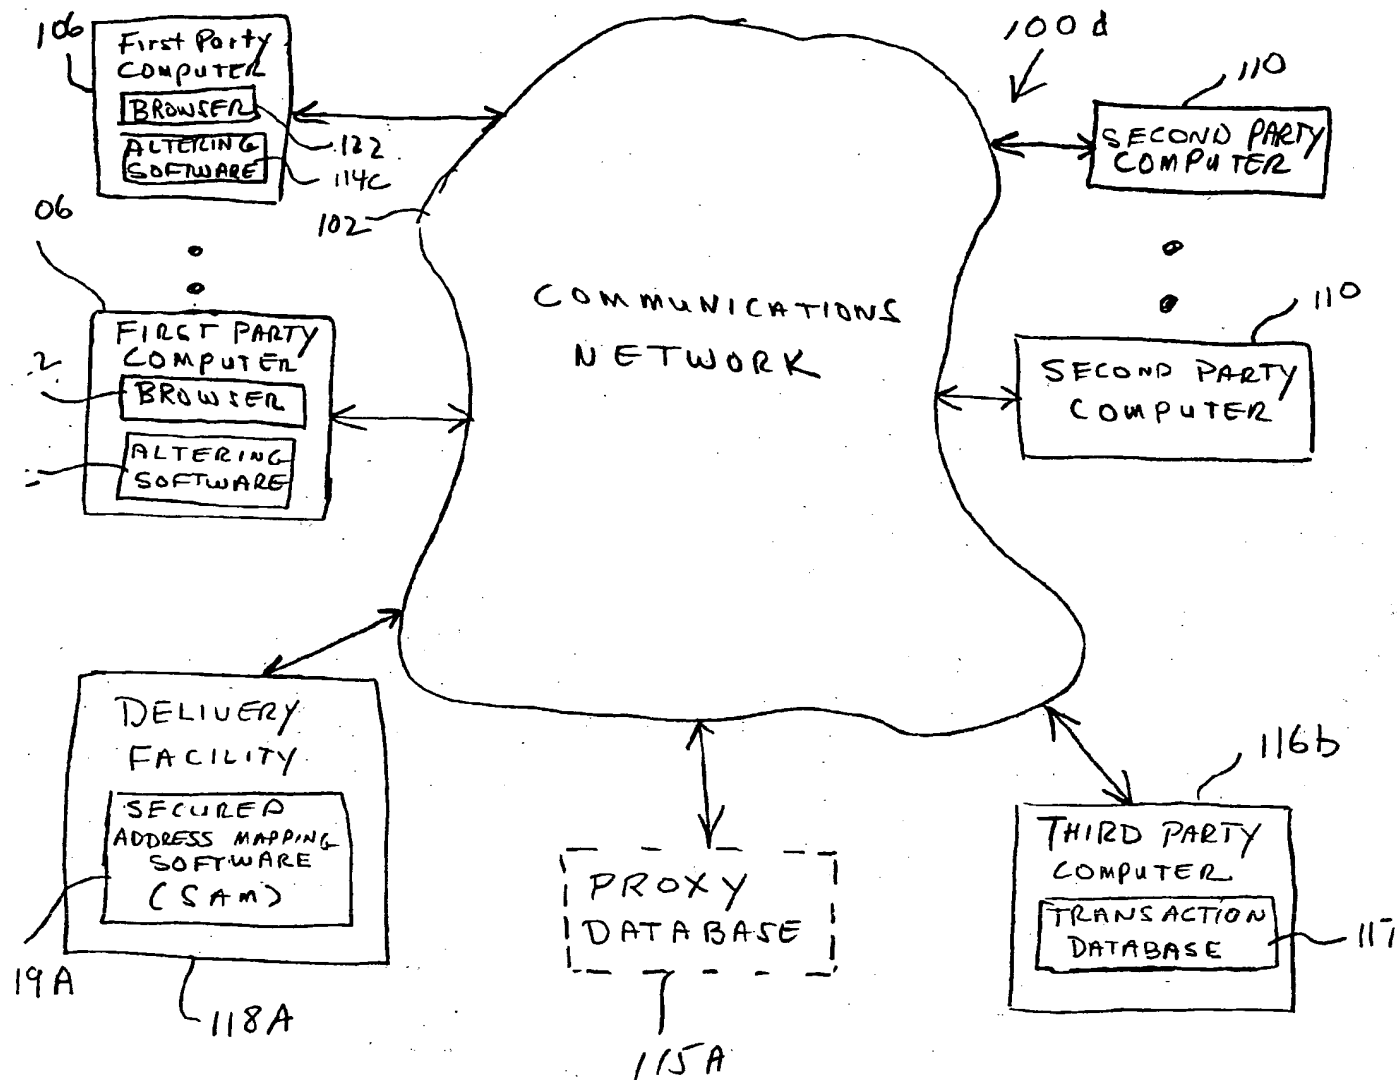 106
First Party
COMPUTER
BROWSER
ALTERING
SOFTWARE
122
114c
102
100d
110
SECOND PARTY
COMPUTER
06
FIRST PARTY
COMPUTER
BROWSER
ALTERING
SOFTWARE
2
COMMUNICATIONS
NETWORK
110
SECOND PARTY
COMPUTER
DELIVERY
FACILITY
SECURED
ADDRESS MAPPING
SOFTWARE
(SAM)
19A
118A
PROXY
DATABASE
115A
116b
THIRD PARTY
COMPUTER
TRANSACTION
DATABASE
117